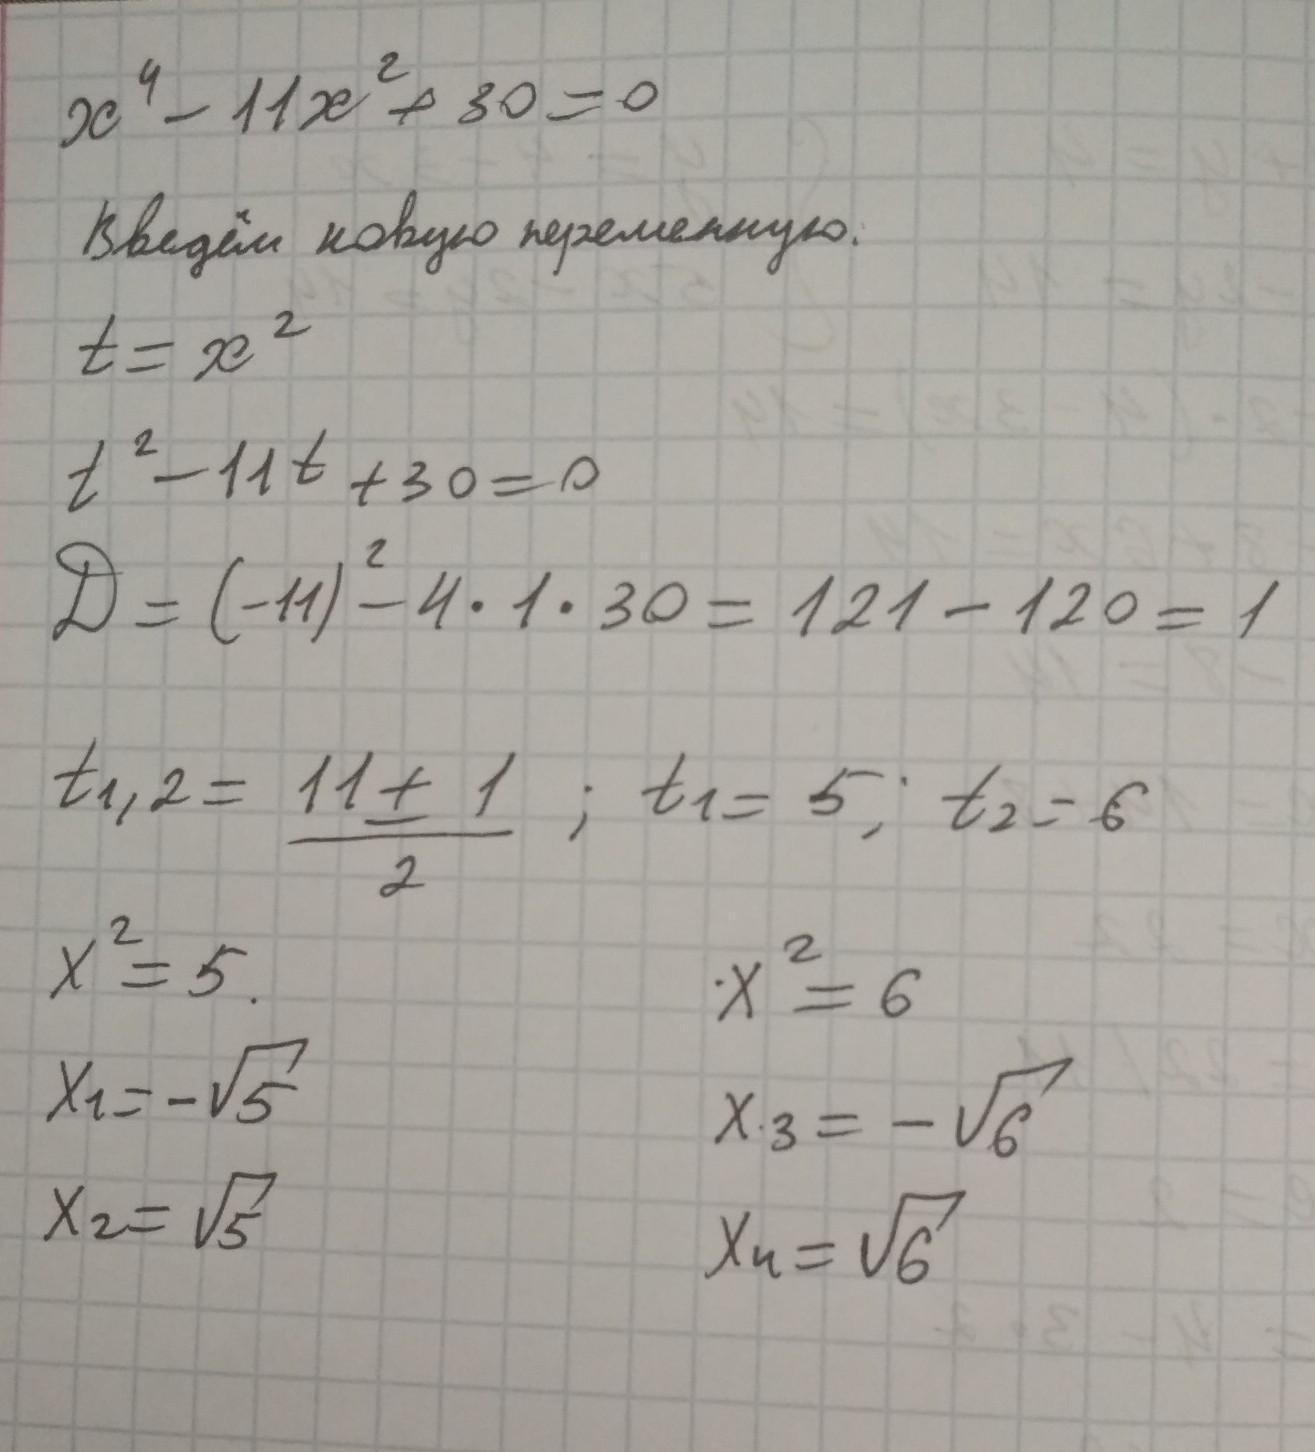 x⁴ - 11x² + 30 = 0
Введём новую переменную.
t = x²
t² - 11t + 30 = 0
D = (-11)² - 4 · 1 · 30 = 121 - 120 = 1
t₁,₂ = (11 ± 1)/2 ; t₁ = 5; t₂ = 6
x² = 5.
x₁ = -√5
x₂ = √5
x² = 6
x₃ = -√6
x₄ = √6